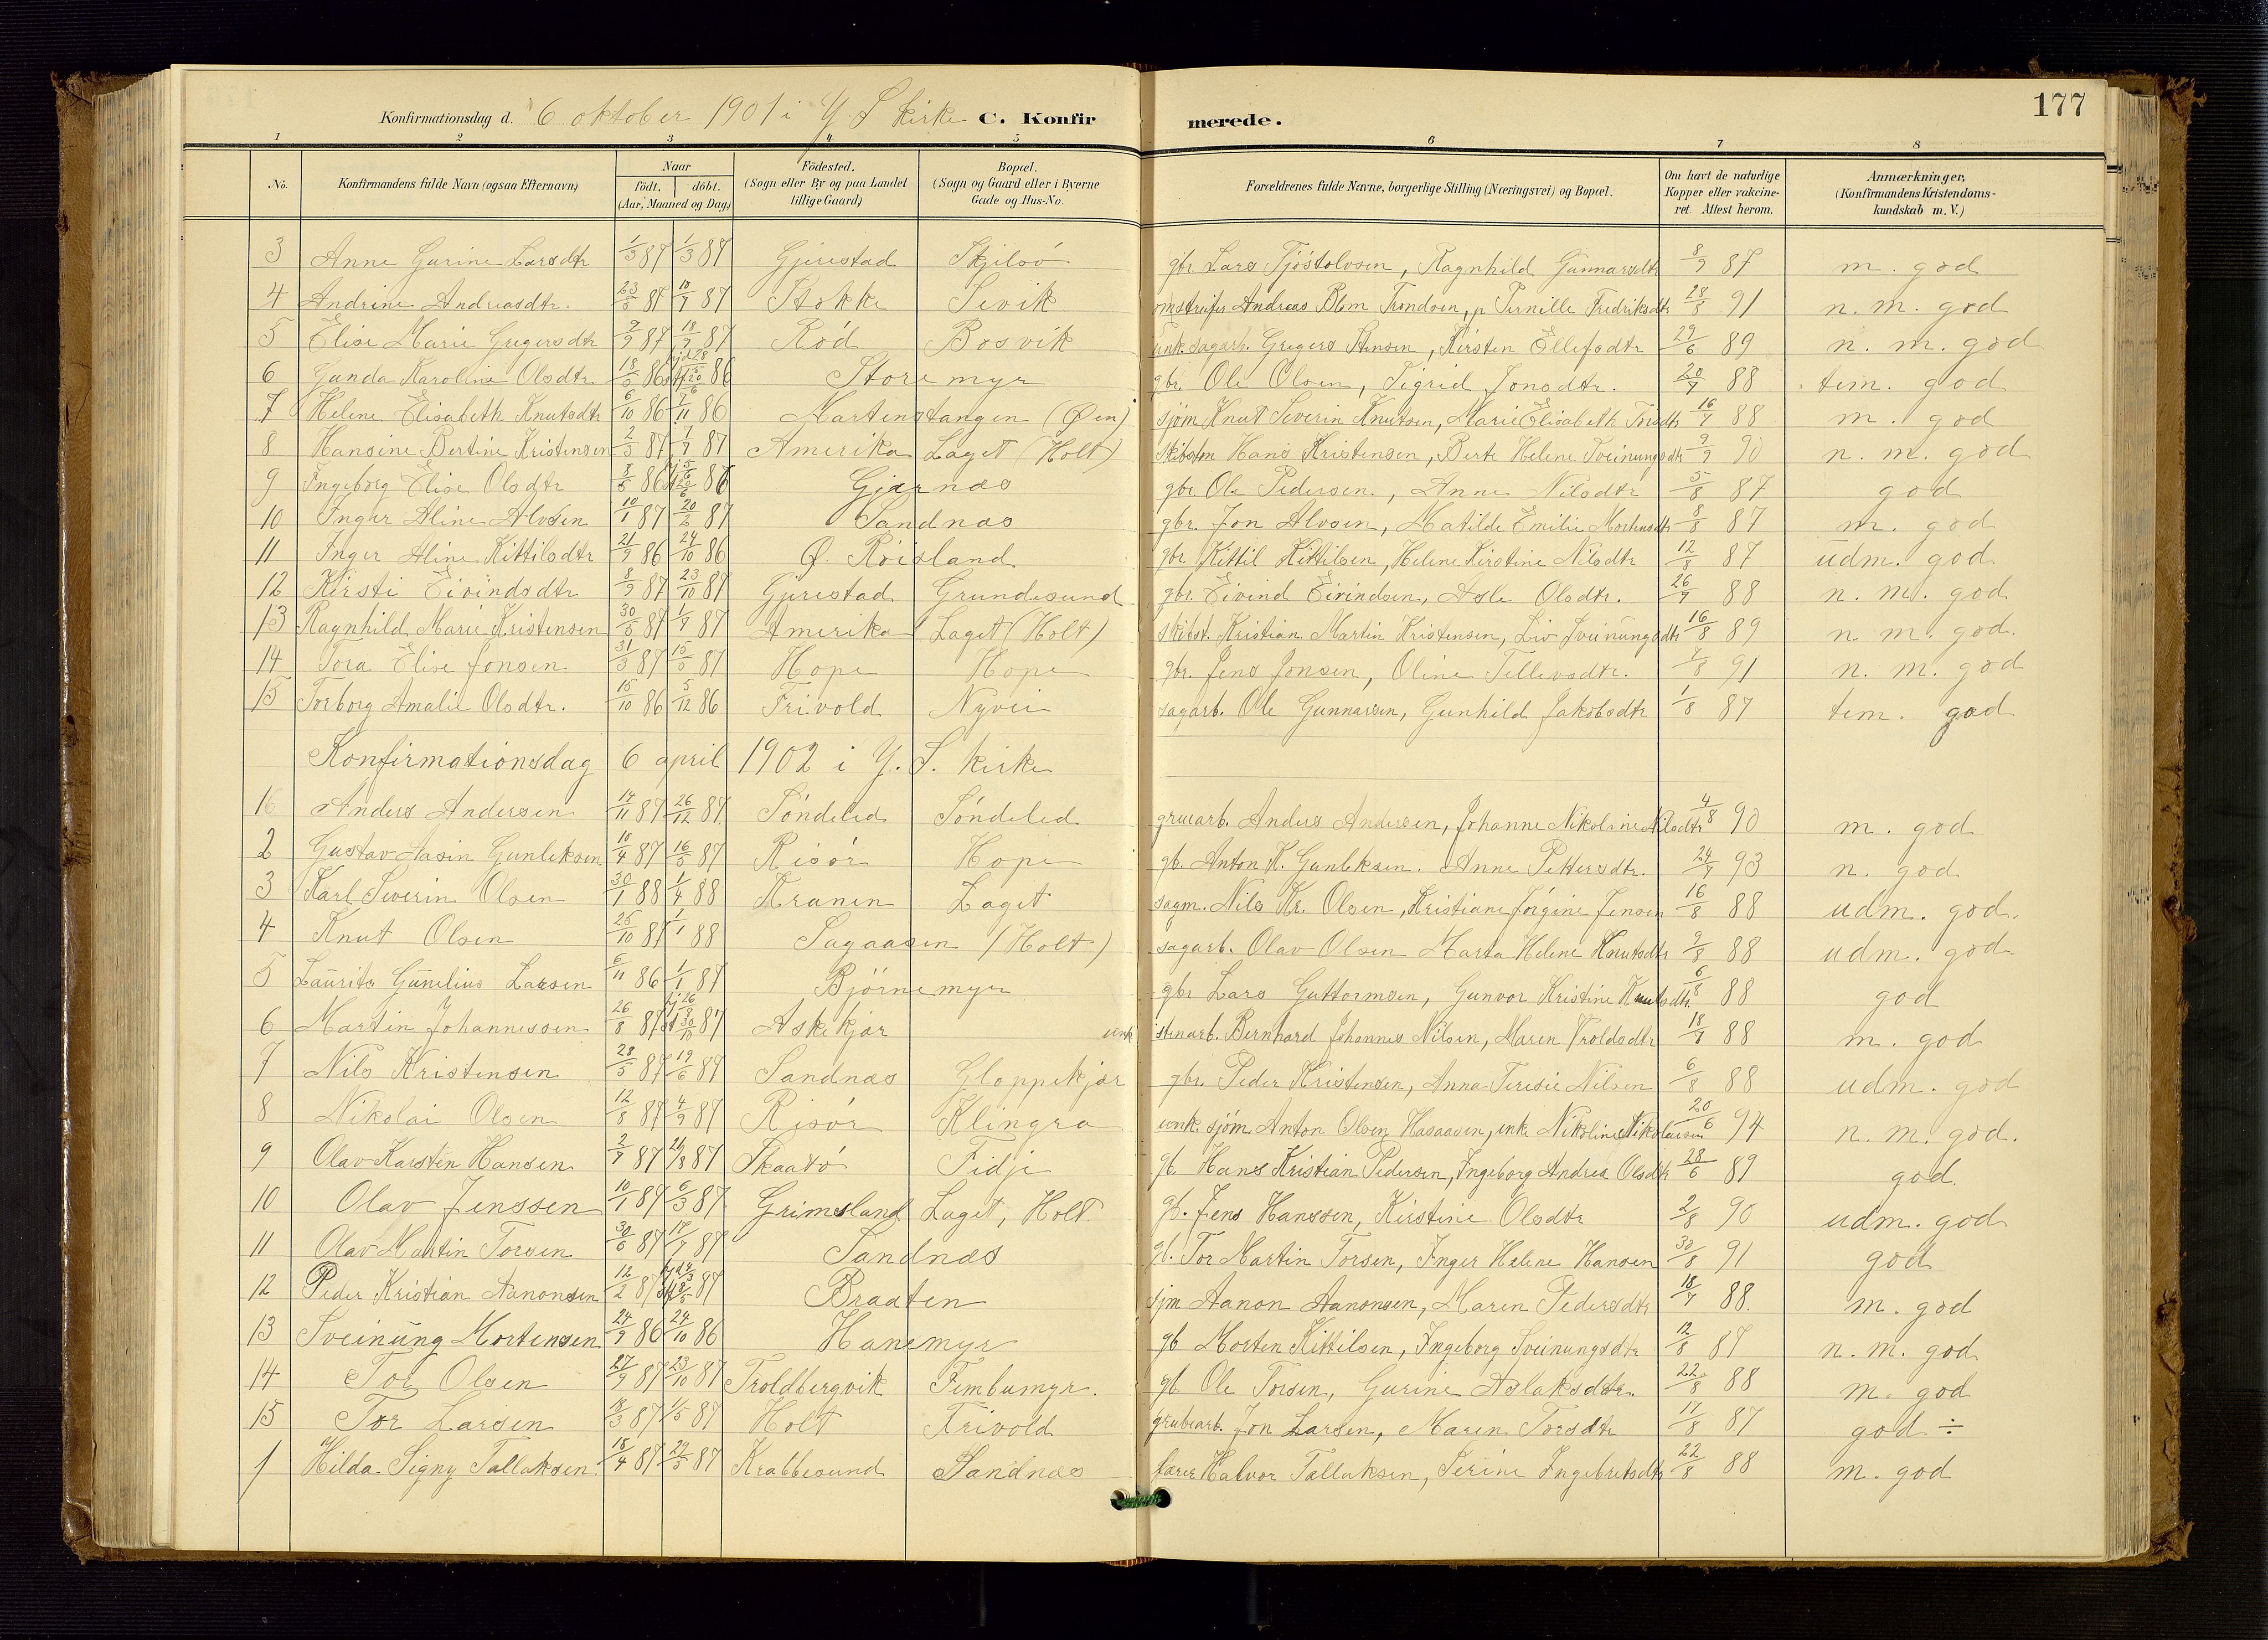 Konfirmationsdag d. 6 oktober 1901 i Y. S kirke C. Konfirmerede. 177
1 2 3 4 5 6 7 8
No. Konfirmandens fulde Navn (ogsaa Efternavn) Naar født. døbt. (Aar, Maaned og Dag) Fødested. (Sogn eller By og paa Landet tillige Gaard) Bopæl. (Sogn og Gaard eller i Byerne Gade og Hus-No. Forældrenes fulde Navne, borgerlige Stilling (Næringsvei) og Bopæl. Om havt de naturlige Kopper eller vakcineret. Attest herom. Anmærkninger, (Konfirmandens Kristendomskundskab m. V.)
3 Anne Gurine Larsdtr 1/3 87 1/3 87 Gjerestad Skjilsö gbr Lars Tjöstolvsen, Ragnhild Gunnarsdtr 8/9 87 m. god
4 Andrine Andreasdtr. 23/5 87 10/7 87 Stokke Sevik Andreas Blm Trondsen, p Pernille Fredriksdtr 28/8 91 n. m. god
5 Elise Marie Gregersdtr 7/9 87 18/9 87 Röd Bosvik unk. sagarb. Gregers Stensen, Kirsten Ellefsdtr 29/6 89 n. m. god
6 Gunda Karoline Olsdtr. 18/5 86 86 Storemyr gbr. Ole Olsen, Sigrid Jonsdtr. 20/7 88 tem. god
7 Helene Elisabeth Knutsdtr 6/10 86 7/11 86 Martenstangen (Øen) sjöm Knut Severin Knutsen, Marie Elisabeth Torsdtr 16/7 88 m. god
8 Hansine Bertine Kristensen 2/5 87 1/7 87 Amerika Laget (Holt) Hans Kristensen, Berte Helene Sveinungsdtr 9/9 90 n. m. god
9 Ingeborg Elise Olsdtr 8/5 86 86 Gjærnæs gbr. Ole Pedersen, Anne Nilsdtr 5/8 87 god
10 Inger Aline Alvsen 10/1 87 20/2 87 Sandnæs gbr. Jon Alvsen, Matilde Emilie Mortensdtr 8/8 87 m. god
11 Inger Aline Kittilsdtr 21/9 86 24/10 86 Ø. Röisland gbr. Kittil Kittilsen, Helene Kirstine Nilsdtr 12/8 87 udm. god
12 Kirsti Eivindsdtr 8/9 87 23/10 87 Gjerestad Grundesund gbr. Eivind Eivindsen, Asle Olsdtr. 26/7 88 n. m. god
13 Ragnhild Marie Kristensen 30/5 87 1/7 87 Amerika Laget (Holt) skibst. Kristian Martin Kristensen, Liv Sveinungsdtr 16/8 89 n. m. god.
14 Tora Elise Jonsen 31/3 87 15/5 87 Hope Hope gbr. Jens Jonsen, Oline Tellevsdtr. 7/8 91 n. m. god
15 Torborg Amalie Olsdtr. 15/10 86 5/12 86 Frivold Nyvei sagarb. Ole Gunnarsen, Gunhild Jakobsdtr 1/8 87 tem. god
Konfirmationsdag 6 april 1902 i Y. S. kirke
16 Anders Andersen 14/11 87 26/12 87 Söndeled Söndeled gruearb. Anders Andersen, Johanne Nikoline Nilsdtr 4/8 90 m. god
2 Gustav Aasin Gunleksen 10/4 87 16/5 87 Risör Hope gb. Anton K. Gunleksen. Anne Pettersdtr. 24/7 93 n. god
3 Karl Severin Olsen 30/1 88 1/4 88 Kranen Laget sagm. Nils Kr. Olsen, Kristiane Jörgine Jensen 16/8 88 udm. god.
4 Knut Olsen 25/10 87 1/1 88 Sagaasen (Holt) sagarb. Olav Olsen Marta Helene Knutsdtr 9/8 88 udm. god.
5 Laurits Gunelius Larsen 6/11 86 1/1 87 Björnemyr gbr Lars Guttormsen, Gunvor Kristine Knutsdtr 6/8 88 god
6 Martin Johannessen 26/8 87 87 Askekjær unk stenarb. Bernhard Johannes Nilsen, Maren Troldsdtr 18/7 88 m. god
7 Nils Kristensen 28/5 87 19/6 87 Sandnæs Gloppekjær gbr. Peder Kristensen, Anna Teresie Nilsen 6/8 88 udm. god
8 Nikolai Olsen 12/8 87 4/9 87 Risör Klingra unk. sjöm. Anton Olsen Hasaasen, enke Nikoline Nikolaisen 20/6 94 n. m. god.
9 Olav Karsten Hansen 2/7 87 21/8 87 Skaatö Fidje gb. Hans Kristian Pedersen, Ingeborg Andrea Olsdtr 28/6 89 god.
10 Olav Jenssen 10/1 87 6/3 87 Grimsland Laget, Holt. gb. Jens Hanssen, Kirstine Olsdtr 2/8 90 udm. god
11 Olav Martin Torsen 30/6 87 17/7 87 Sandnæs gb. Tor Martin Torsen, Inger Helene Hansen 30/8 91 god
12 Peder Kristian Aanonsen 12/2 87 87 Braaten sjm Aanon Aanonsen, Maren Pedersdtr 18/7 88. m. god
13 Sveinung Mortensen 24/9 86 24/10 86 Hanemyr gb Morten Kittilsen, Ingeborg Sveinungsdtr 12/8 87 n. m. god
14 Tor Olsen 27/9 87 23/10 87 Troldbergvik Fimbumyr. gb. Ole Torsen, Gurine Aslaksdtr. 22/8 88 m. god
15 Tor Larsen 18/3 87 1/5 87 Holt Frivold grubearb. Jon Larsen, Maren Torsdtr 17/8 87 god ÷
1 Hilda Signy Tallaksen 15/4 87 29/5 87 Krabbesund Sandnæs Halvor Tallaksen, Serine Ingebretsdtr 22/8 88 m. god